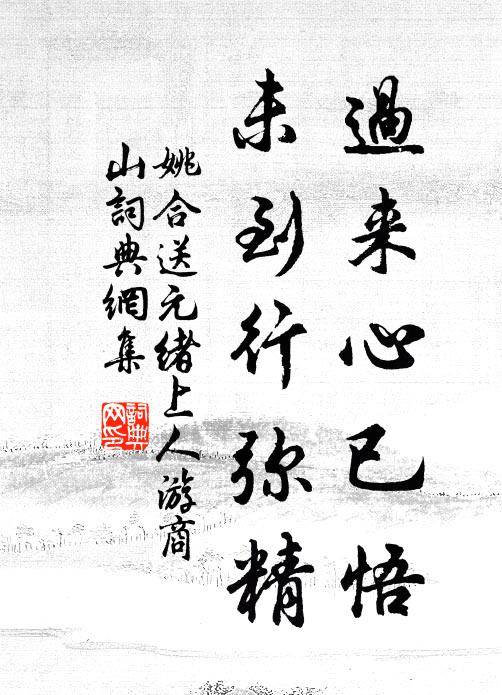 過来心已悟
未到行弥精
姚合送元绪上人游商
山詞典網集
詞典
网印